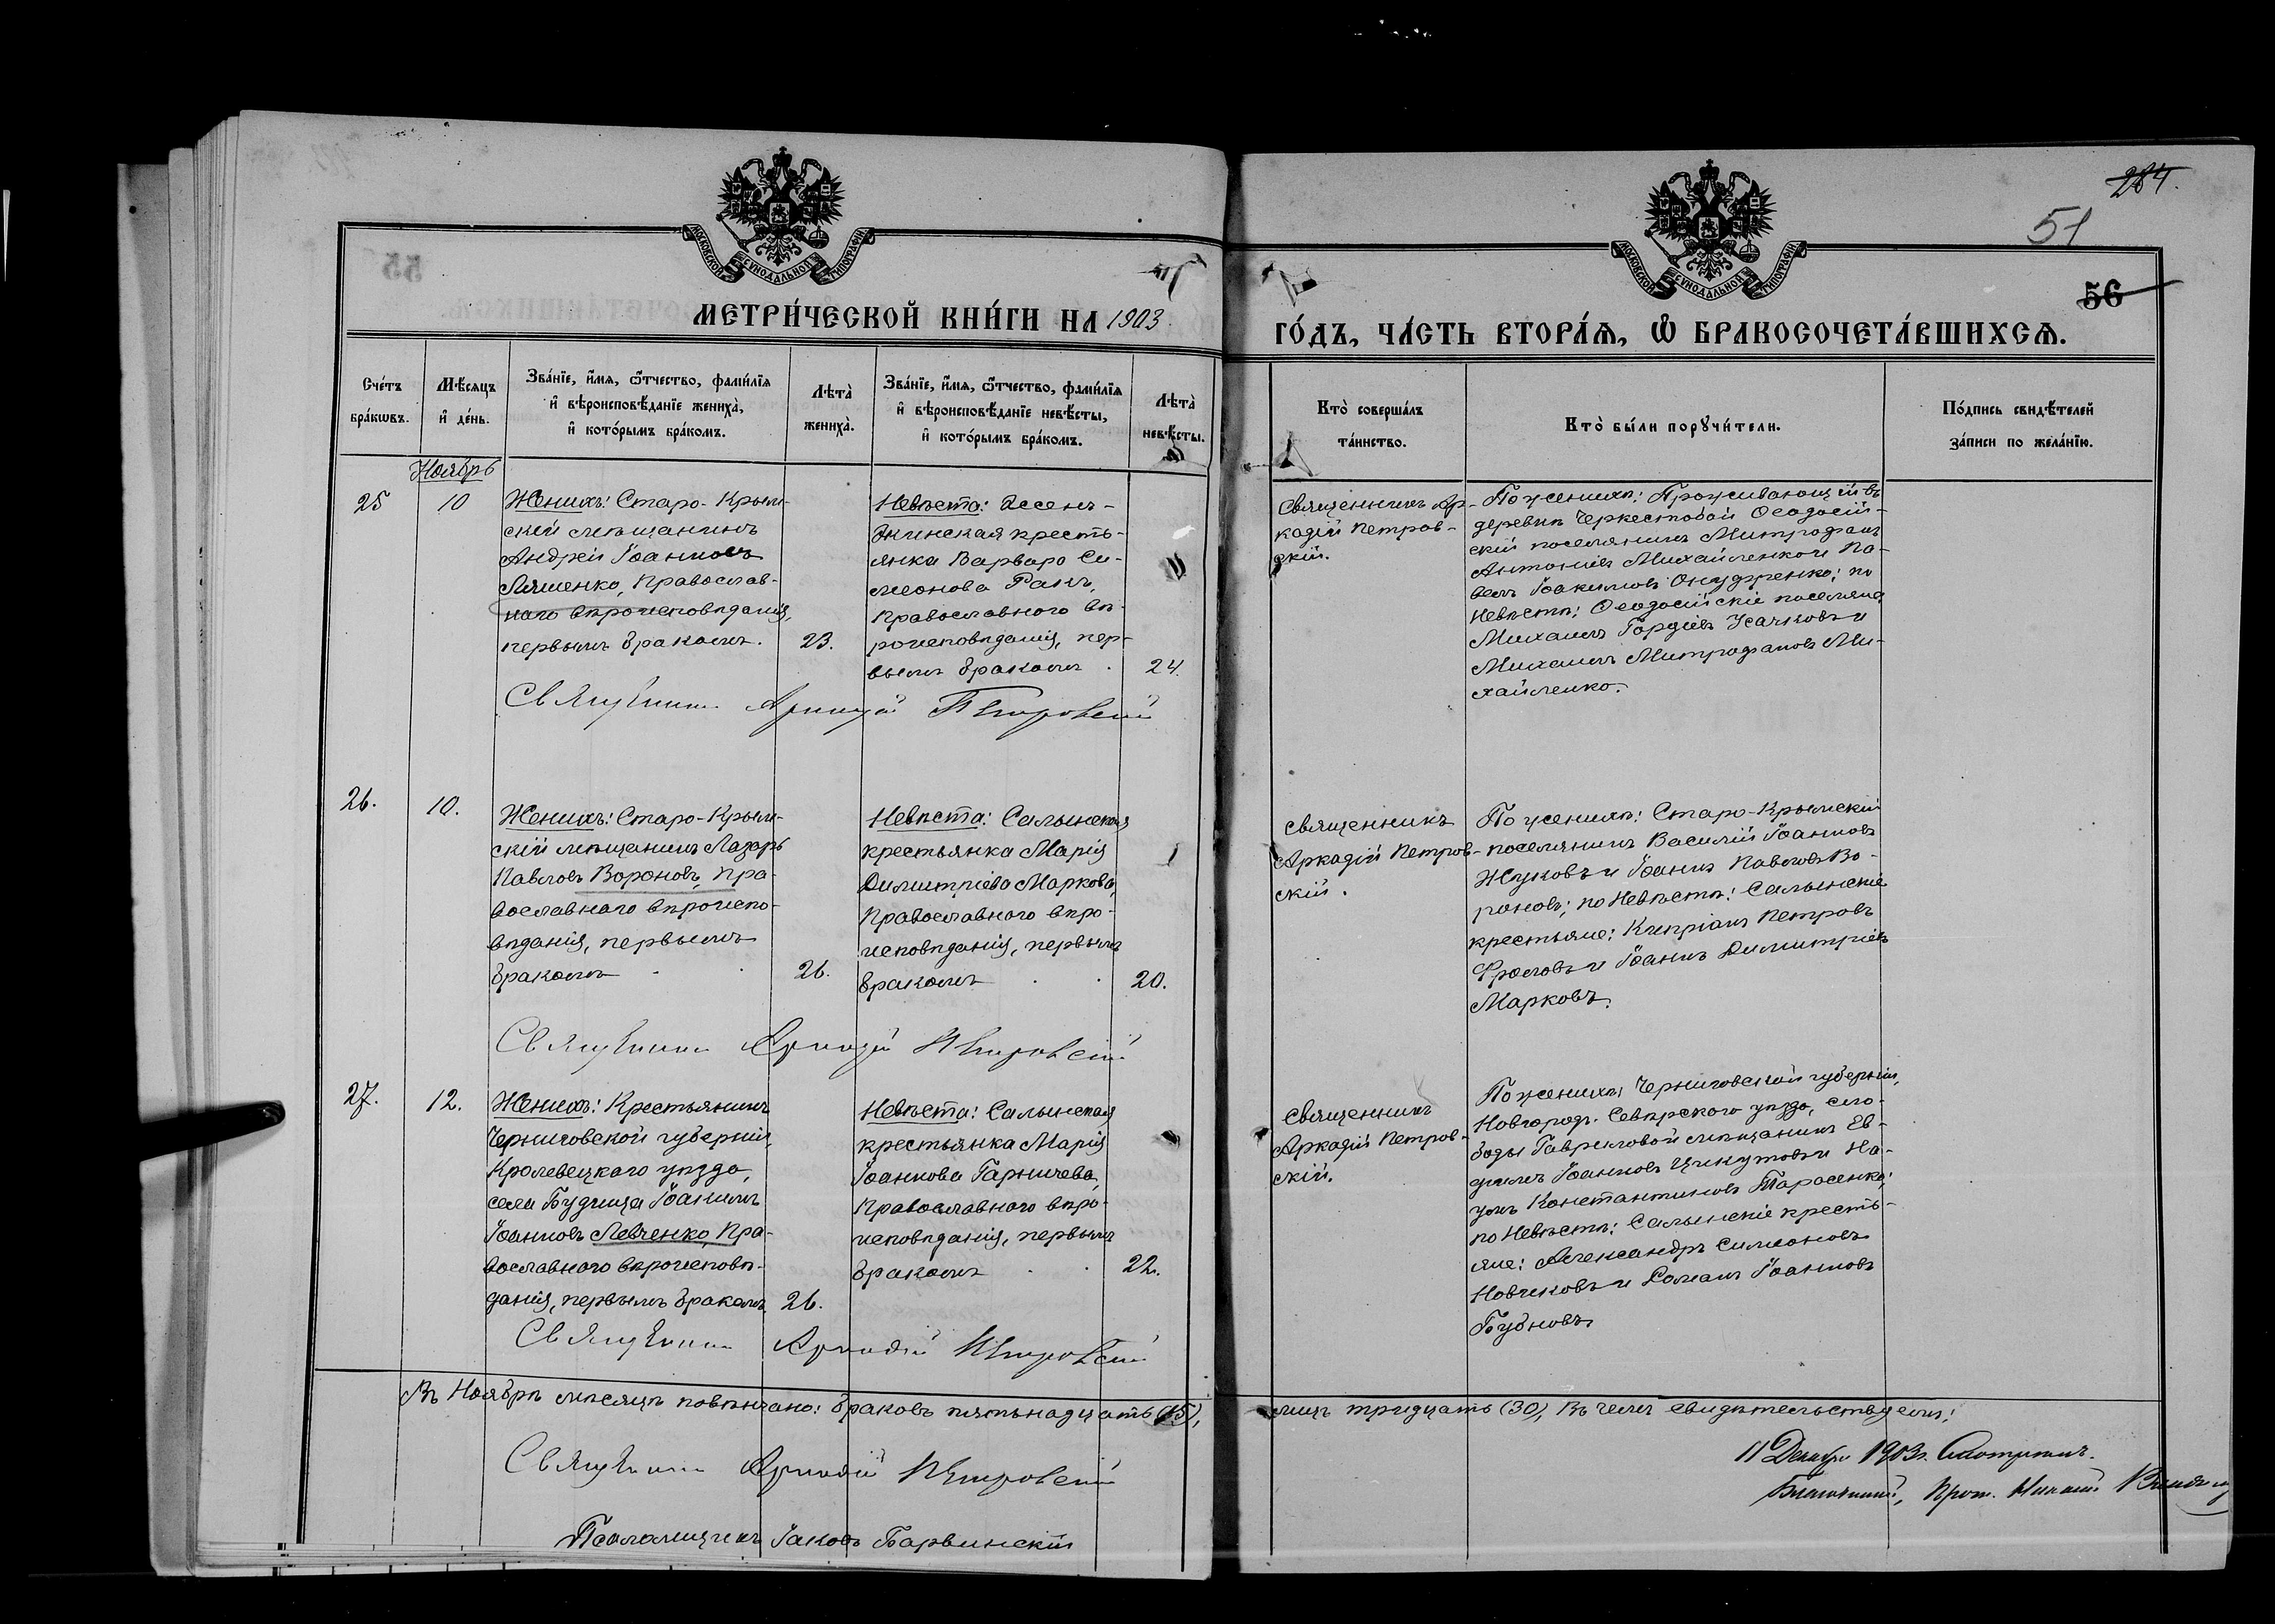 284.
51
56
МОСКОВСКОЙ СѴНОДАЛЬНОЙ ТИПОГРАФІИ
МЕТРИ́ЧЕСКОЙ КНИ́ГИ НА 1903
МОСКОВСКОЙ СѴНОДАЛЬНОЙ ТИПОГРАФІИ
ГО́ДЪ, ЧА́СТЬ ВТОРА́Ѧ, Ѽ БРАКОСОЧЕТА́ВШИХСѦ.
Сче́тъ
бра́кѡвъ.
Мѣ́сяцъ
и҆ де́нь.
Зва́нїе, и҆́мя, ѻ҆́тчество, фами́лїя
и҆ вѣроисповѣ́данїе жениха̀,
и҆ кото́рымъ бра́комъ.
Лѣта̀
жениха̀.
Зва́нїе, и҆́мя, ѻ҆́тчество, фами́лїя
и҆ вѣроисповѣ́данїе невѣ́сты,
и҆ кото́рымъ бра́комъ.
Лѣта̀
невѣ́сты.
Кто̀ соверша́лъ
та́инство.
Кто̀ бы́ли порꙋчи́тели.
По́дпись свидѣ́телей
за́писи по жела́нїю.
Ноябрь
25
10
Женихъ: Старо-Крым-
скій мѣщанинъ
Андрей Іоанновъ
Ляшенко, Православ-
наго вѣроисповѣданія,
первымъ бракомъ.
23.
Невѣста:
жинская кресть-
янка Варвара Си-
меонова Ранъ,
Православнаго вѣ-
роисповѣданія, пер-
вымъ бракомъ.
24.
Священникъ Ар-
кадій Петров-
скій.
По женихѣ: Проживающій въ
деревнѣ Черкестобай Ѳеодосій-
скій поселянинъ Митрофанъ
Антоніевъ Михайленко и Па-
велъ Іоакимовъ Онуфренко; по
Невѣстѣ: Ѳеодосійскіе поселяне
Михаилъ Гордіевъ Усачковъ и
Михаилъ Митрофановъ Ми-
хайленко.
Священникъ Аркадій Петровскій
26.
10.
Женихъ: Старо-Крым-
скій мѣщанинъ Лазарь
Павловъ Вороновъ, Пра-
вославнаго вѣроиспо-
вѣданія, первымъ
бракомъ
26.
Невѣста: Салынская
крестьянка Марія
Димитріева Маркова,
Православнаго вѣро-
исповѣданія, первымъ
бракомъ
20.
Священникъ
Аркадій Петров-
скій.
По женихѣ: Старо-Крымскій
поселянинъ Василій Іоанновъ
Жуковъ и Іоаннъ Павловъ Во-
роновъ; по Невѣстѣ: Салынскіе
крестьяне: Кипріанъ Петровъ
Фроловъ и Іоаннъ Димитріевъ
Марковъ.
Священникъ Аркадій Петровскій
27.
12.
Женихъ: Крестьянинъ
Черниговской губерніи,
Кролевецкаго уѣзда,
села Будища Іоакимъ
Іоанновъ Левченко, Пра-
вославнаго вѣроисповѣ-
данія, первымъ бракомъ
26.
Невѣста: Салынская
крестьянка Марія
Іоаннова Гарничева,
Православнаго вѣро-
исповѣданія, первымъ
бракомъ
22.
Священникъ
Аркадій Петров-
скій.
По женихѣ: Черниговской губерніи,
Новгородъ-Сѣверскаго уѣзда, сло-
боды Гавриловой мѣщанинъ Ев-
фимъ Іоанновъ и На-
умъ Константиновъ Тарасенко;
по Невѣстѣ: Салынскіе кресть-
яне: Александръ Симеоновъ
Новиковъ и Романъ Іоанновъ
Бубновъ
Священникъ Аркадій Петровскій
Въ Ноябрѣ мѣсяцѣ повѣнчано: браковъ пятьнадцать (15),
лицъ тридцать (30), въ чемъ свидѣтельствуемъ:
Священникъ Аркадій Петровскій
Псаломщикъ Іаковъ Барвинскій
11 Декабря 1903 г. Смотрѣлъ.
Благочинный, Прот.